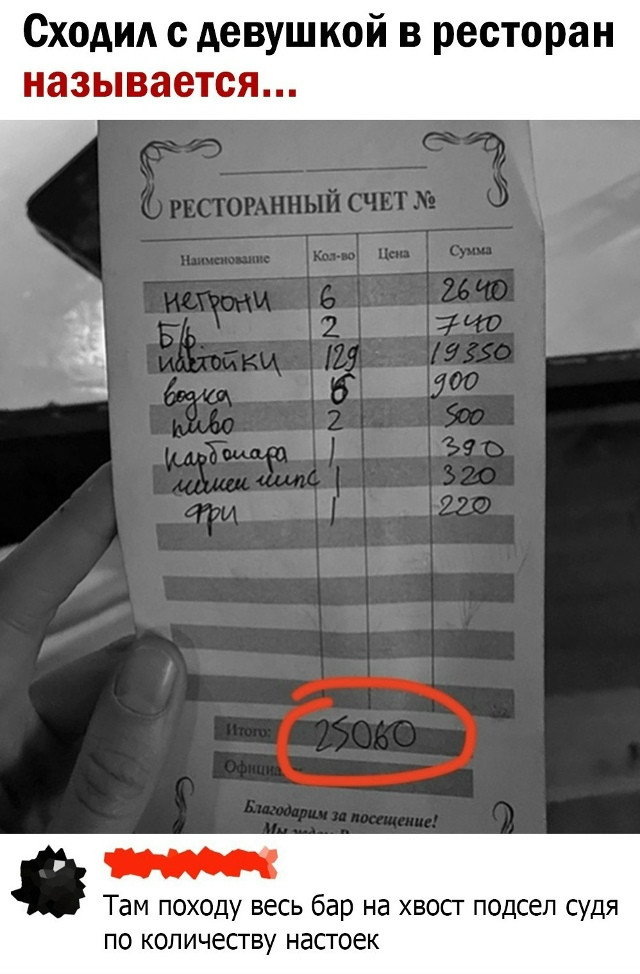 Сходил с девушкой в ресторан
называется...
РЕСТОРАННЫЙ СЧЕТ №
Наименование Кол-во Цена Сумма
негрони 6 2640
Б/р. 2 740
настойки 129 19350
водка 6 900
пиво 2 500
карбонара 1 390
чипс 1 320
фри 1 220
Итого: 25060
Благодарим за посещение!
Там походу весь бар на хвост подсел судя
по количеству настоек